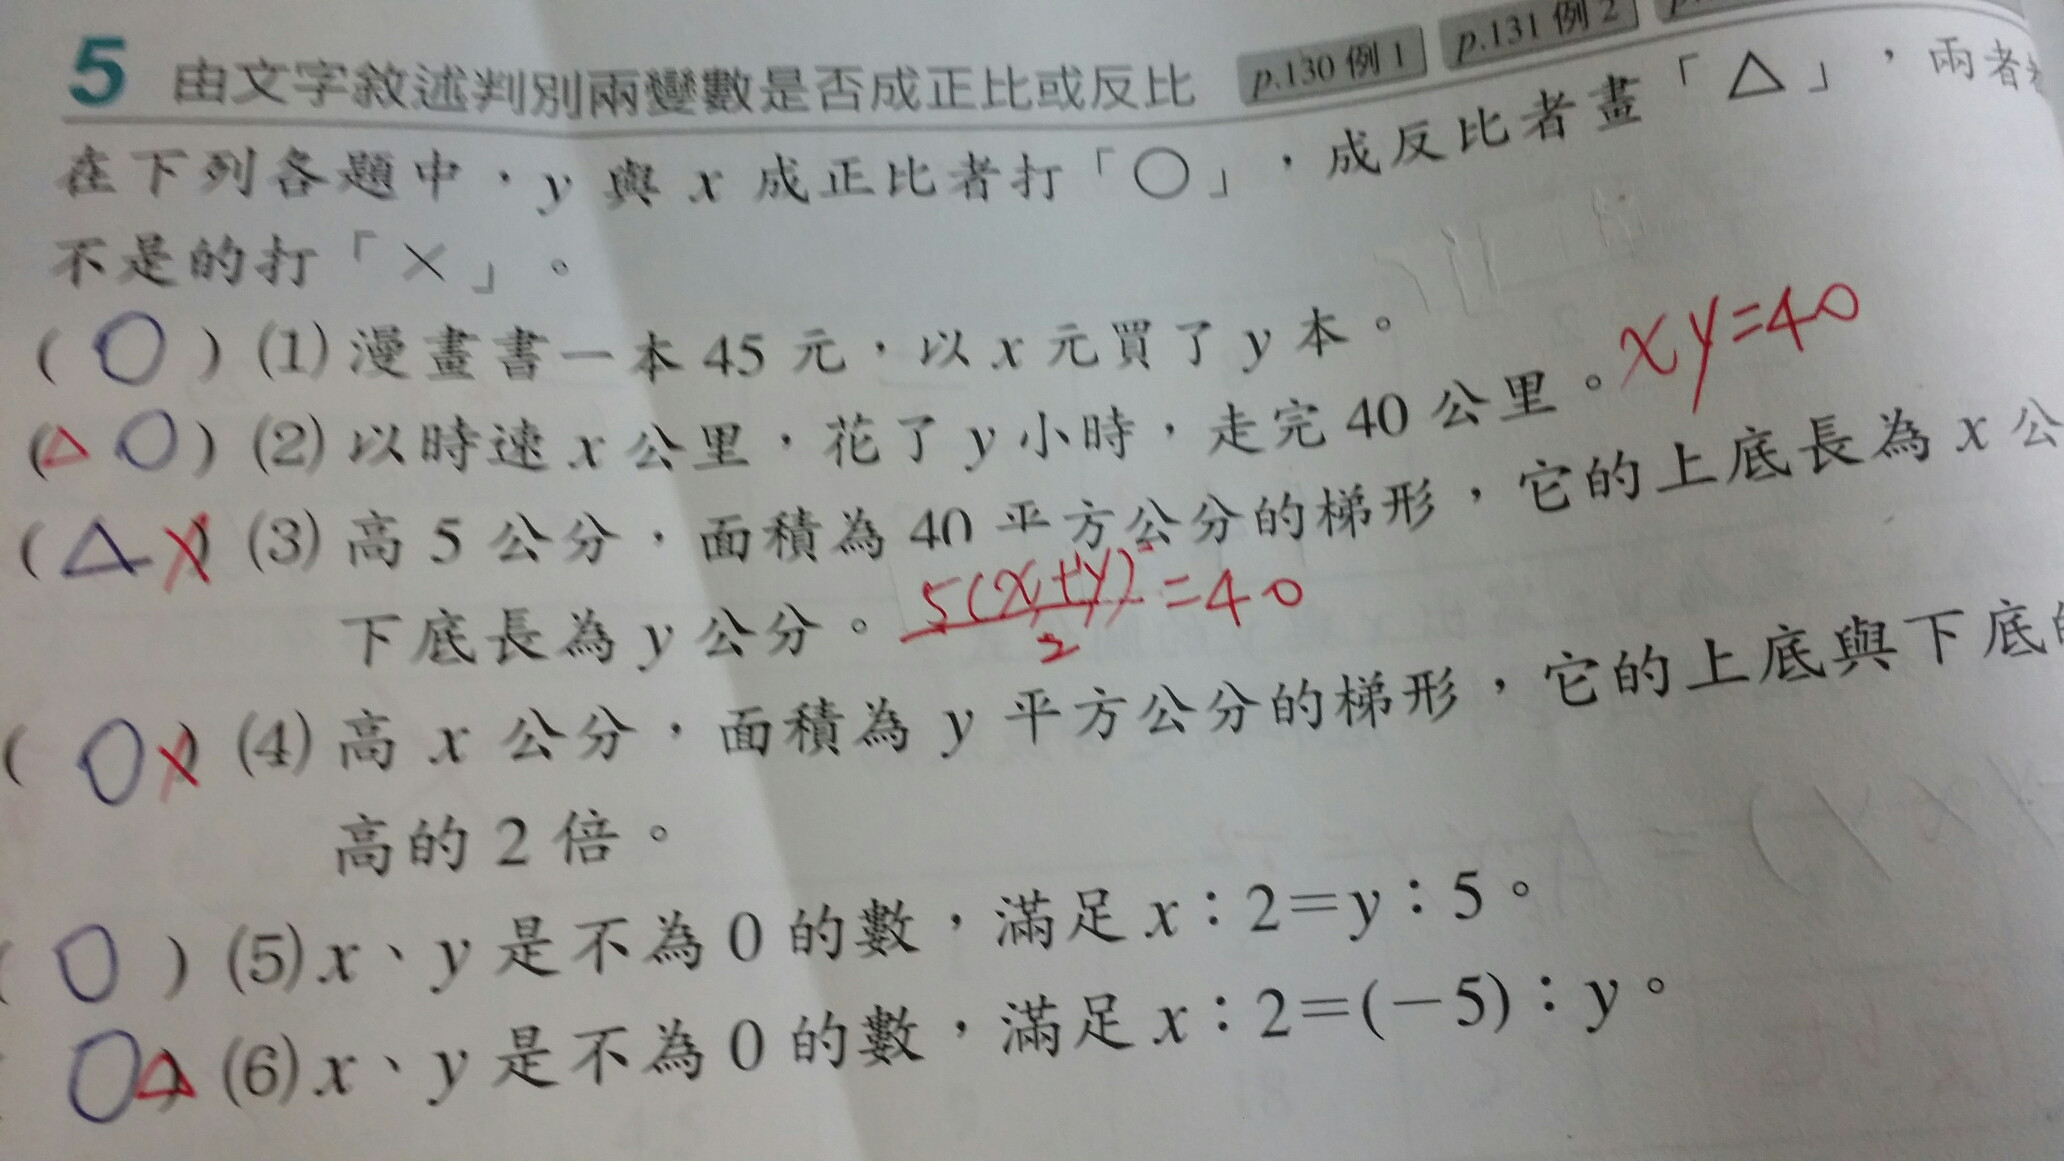 5 由文字敘述判別兩變數是否成正比或反比 p.130 例 1 p.131 例 2
在下列各題中，y 與 x 成正比者打「○」，成反比者畫「△」，兩者
不是的打「×」。
( ○ ) (1) 漫畫書一本 45 元，以 x 元買了 y 本。
(△ ○ ) (2) 以時速 x 公里，花了 y 小時，走完 40 公里。 xy=40
( △ X) (3) 高 5 公分，面積為 40 平方公分的梯形，它的上底長為 x 公
下底長為 y 公分。 5(x+y)/2 =40
( ○ X) (4) 高 x 公分，面積為 y 平方公分的梯形，它的上底與下底
高的 2 倍。
( ○ ) (5) x、y 是不為 0 的數，滿足 x：2=y：5。
○△) (6) x、y 是不為 0 的數，滿足 x：2=(－5)：y。